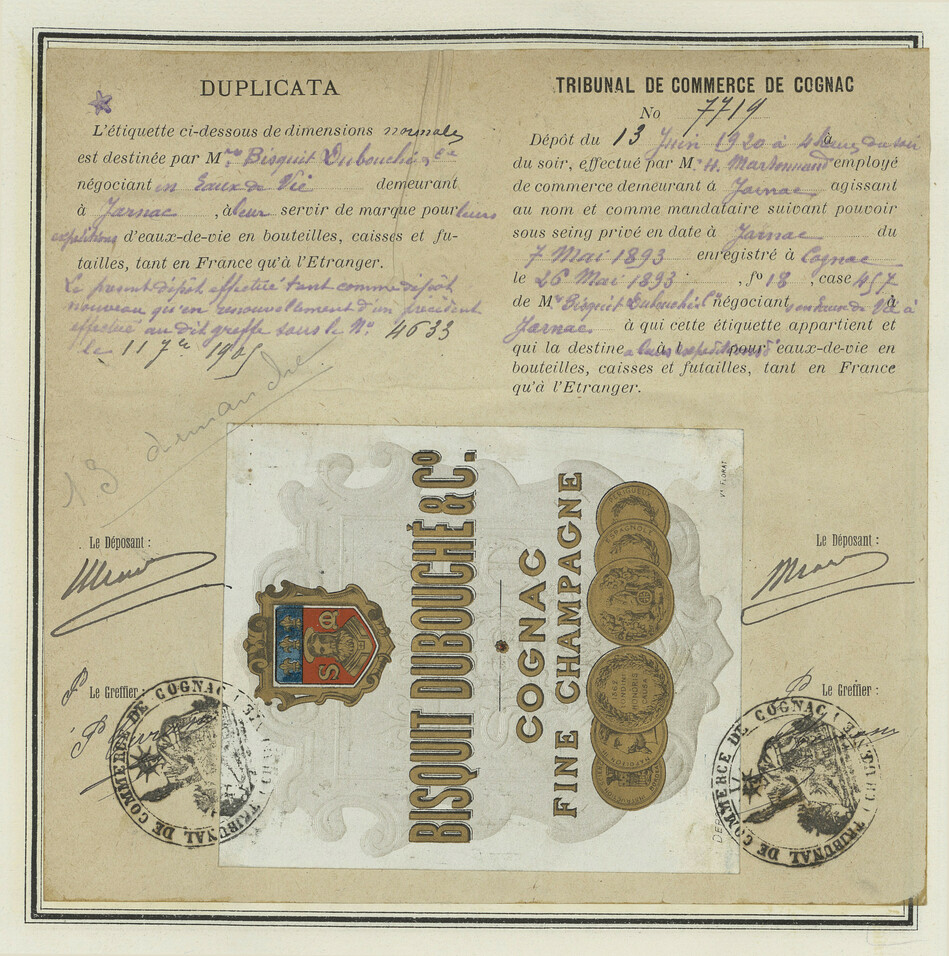 DUPLICATA
L'étiquette ci-dessous de dimensions normales
est destinée par M.rs Bisquit Dubouché & Cie
négociant en Eaux de Vie demeurant
à Jarnac , à leur servir de marque pour leurs
expéditions d'eaux-de-vie en bouteilles, caisses et fu-
tailles, tant en France qu'à l'Etranger.
Le présent dépôt effectué tant comme dépôt
nouveau qu'en renouvellement d'un précédent
effectué au dit greffe sous le No. 4633
le 11 7bre 1905
13 demandée
TRIBUNAL DE COMMERCE DE COGNAC
No 7719
Dépôt du 13 Juin 1920 à 4 heures du soir
du soir, effectué par M. H. employé
de commerce demeurant à Jarnac agissant
au nom et comme mandataire suivant pouvoir
sous seing privé en date à Jarnac du
7 Mai 1893 enregistré à Cognac
le 26 Mai 1893 , fo 18 , case 457
de Mrs Bisquit Dubouché & Ce négociant en Eaux de Vie à
Jarnac à qui cette étiquette appartient et
qui la destine à leurs expéditions d'eaux-de-vie en
bouteilles, caisses et futailles, tant en France
qu'à l'Etranger.
BISQUIT DUBOUCHÉ & Co.
COGNAC
FINE CHAMPAGNE
S Q
PERIGUEUX
ESPAGNOLE
NAPOLEON III
Vr FLORAT
DEP
Le Déposant :
Le Greffier :
TRIBUNAL DE COMMERCE DE COGNAC (CHARENTE)
Le Déposant :
Le Greffier :
TRIBUNAL DE COMMERCE DE COGNAC (CHARENTE)